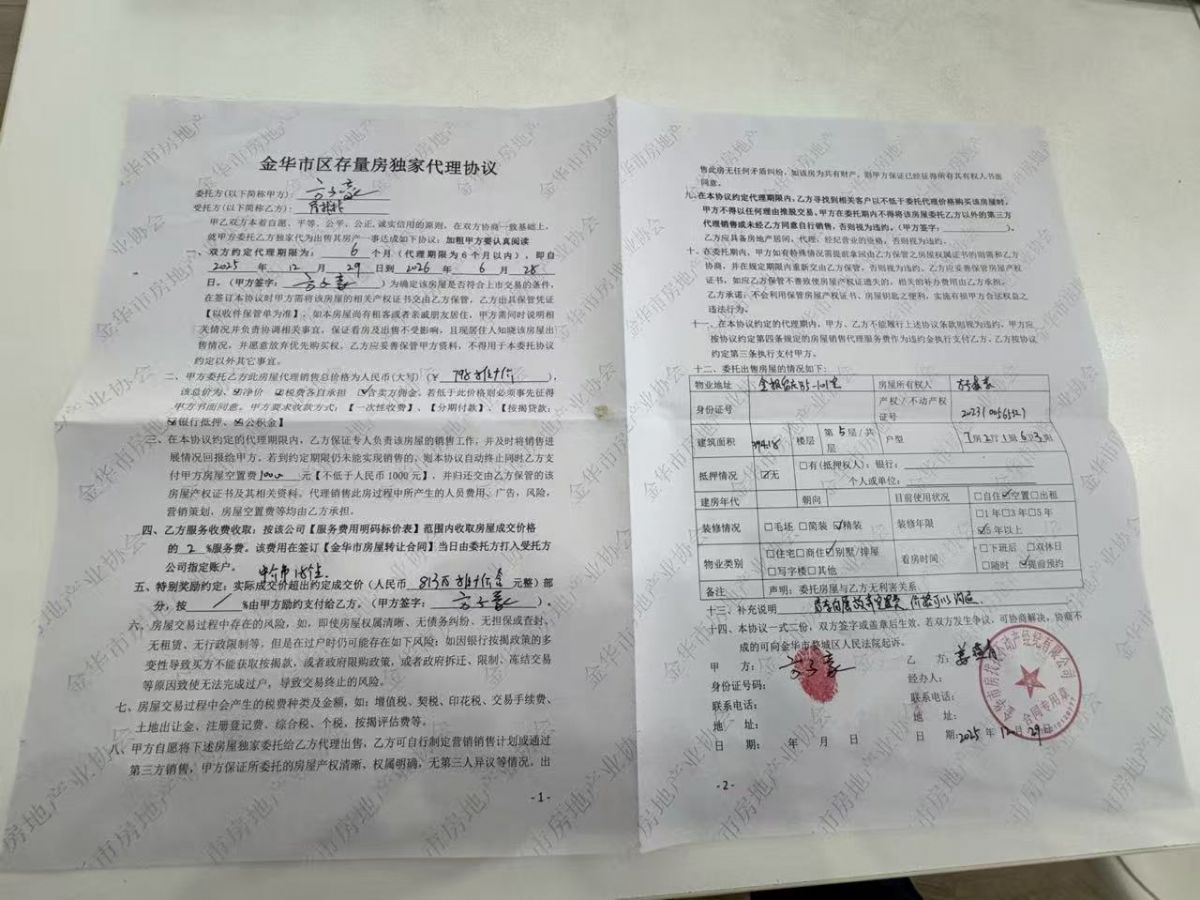 金华市区存量房独家代理协议
委托方(以下简称甲方):
受托方(以下简称乙方):
甲乙双方本着自愿、平等、公平、公正、诚实信用的原则，在双方协商一致基础上，
就甲方委托乙方独家代为出售其房产一事达成如下协议：加粗甲方要认真阅读
一、双方约定代理期限为： 6 个月（代理期限为6个月以内），即自
2025 年 12 月 29 日到 2026 年 6 月 28
日。（甲方签字： ）为确定该房屋是否符合上市交易的条件，
在签订本协议时甲方需将该房屋的相关产权证书交由乙方保管，乙方出具保管凭证
【以收件保管单为准】，如本房屋尚有租客或者亲戚朋友居住，甲方需同时说明相
关情况并负责协调相关事宜，保证看房及出售不受影响，且现居住人知晓该房屋出
售情况，并愿意放弃优先购买权。乙方应妥善保管甲方资料，不得用于本委托协议
约定以外其它事宜。
二、甲方委托乙方此房屋代理销售总价格为人民币(大写)（¥ 798 ），
该总价为、☑净价 ☑税费各自承担 ☑含卖方佣金。若低于此价格则必须事先征得
甲方书面同意。甲方要求收款方式：【一次性收费】、【分期付款】、【按揭贷款：
☑银行抵押、☑公积金】
三、在本协议约定的代理期限内，乙方保证专人负责该房屋的销售工作，并及时将销售进
展情况回报给甲方。若到约定期限仍未能实现销售的，则本协议自动终止同时乙方支
付甲方房屋空置费 1000 元【不低于人民币1000元】，并归还交由乙方保管的该
房屋产权证书及其相关资料，代理销售此房过程中所产生的人员费用、广告，风险，
营销策划，房屋空置费等均由乙方承担。
四、乙方服务收费收取，按该公司【服务费用明码标价表】范围内收取房屋成交价格
的 2 %服务费。该费用在签订【金华市房屋转让合同】当日由委托方打入受托方
公司指定账户。
五、特别奖励约定：实际成交价超出约定成交价（人民币 813万 元整）部
分，按 / %由甲方励约支付给乙方。（甲方签字： ）。
六、房屋交易过程中存在的风险，如，即使房屋权属清晰、无债务纠纷、无担保或查封、
无租赁、无行政限制等，但是在过户时仍可能存在如下风险：如因银行按揭政策的多
变性导致买方不能获取按揭款，或者政府限购政策，或者政府拆迁、限制、冻结交易
等原因致使无法完成过户，导致交易终止的风险。
七、房屋交易过程中会产生的税费种类及金额，如：增值税、契税、印花税、交易手续费、
土地出让金、注册登记费、综合税、个税，按揭评估费等。
八、甲方自愿将下述房屋独家委托给乙方代理出售，乙方可自行制定营销销售计划或通过
第三方销售，甲方保证所委托的房屋产权清晰、权属明确，无第三人异议等情况。出
- 1 -
售此房无任何矛盾纠纷，如该房为共有财产，则甲方保证已经征得所有其有权人书面
同意。
九、在本协议约定代理期限内，乙方寻找到相关客户以不低于委托代理价格购买该房屋时，
甲方不得以任何理由推脱交易。甲方在委托期内不得将该房屋委托乙方以外的第三方
代理销售或未经乙方同意自行销售，否则视为违约。（甲方签字： ）。
乙方应具备房地产居间、代理、经纪营业的资格，否则视为违约。
十、在委托期内，甲方如有特殊情况需提前拿回由乙方保管之房屋权属证书的则需和乙方
协商，并在规定期限内重新交由乙方保管，否则视为违约。乙方应妥善保管房屋产权
证书，如应乙方保管不善致使房屋产权证遗失的，相关的补办费用由乙方承担。
乙方承诺，不会利用保管房屋产权证书、房屋钥匙之便利，实施有损甲方合法权益之
违法行为。
十一、在本协议约定的代理期内，甲方、乙方不能履行上述协议条款则视为违约，甲方应
按协议约定第四条规定的房屋销售代理服务费作为违约金执行支付乙方。乙方按协议
约定第三条执行支付甲方。
十二、委托出售房屋的情况如下：
物业地址 房屋所有权人
身份证号 产权/不动产权证号
建筑面积 394.18 楼层 第 5 层/共 层 户型
抵押情况 ☑无 □有(抵押权人)：银行：
个人或单位：
建房年代 朝向 目前使用状况 □自住☑空置□出租
装修情况 □毛坯 □简装 ☑精装 装修年限 □1年□3年□5年
☑5年以上
物业类别 □住宅□商住☑别墅/排屋
□写字楼□其他 看房时间 □下班后 □双休日
□随时 ☑提前预约
备注 声明：委托房屋与乙方无利害关系
十三、补充说明
十四、本协议一式二份，双方签字或盖章后生效。若双方发生争议，可协商解决，协商不
成的可向金华市婺城区人民法院起诉。
甲 方： 乙 方：
身份证号码： 经办人：
联系电话： 联系电话：
地 址： 地 址：
日 期： 年 月 日 日 期:2025 年 12 月 29 日
合同专用章
- 2 -